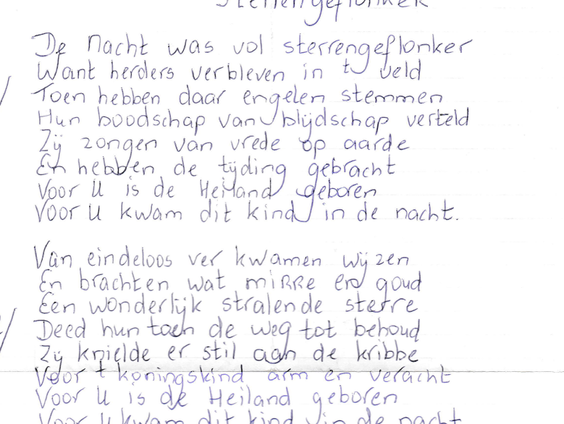 Sterrengeflonker
De Nacht was vol sterrengeflonker
Want herders verbleven in 't veld
Toen hebben daar engelen stemmen
Hun boodschap van blijdschap verteld
Zij zongen van vrede op aarde
En hebben de tijding gebracht
Voor U is de Heiland geboren
Voor U kwam dit kind in de nacht.
Van eindeloos ver kwamen wijzen
En brachten wat mirre en goud
Een wonderlijk stralende sterre
Deed hun toen de weg tot behoud
Zij knielde er stil aan de kribbe
Voor 't koningskind arm en veracht
Voor U is de Heiland geboren
Voor U kwam dit kind in de nacht